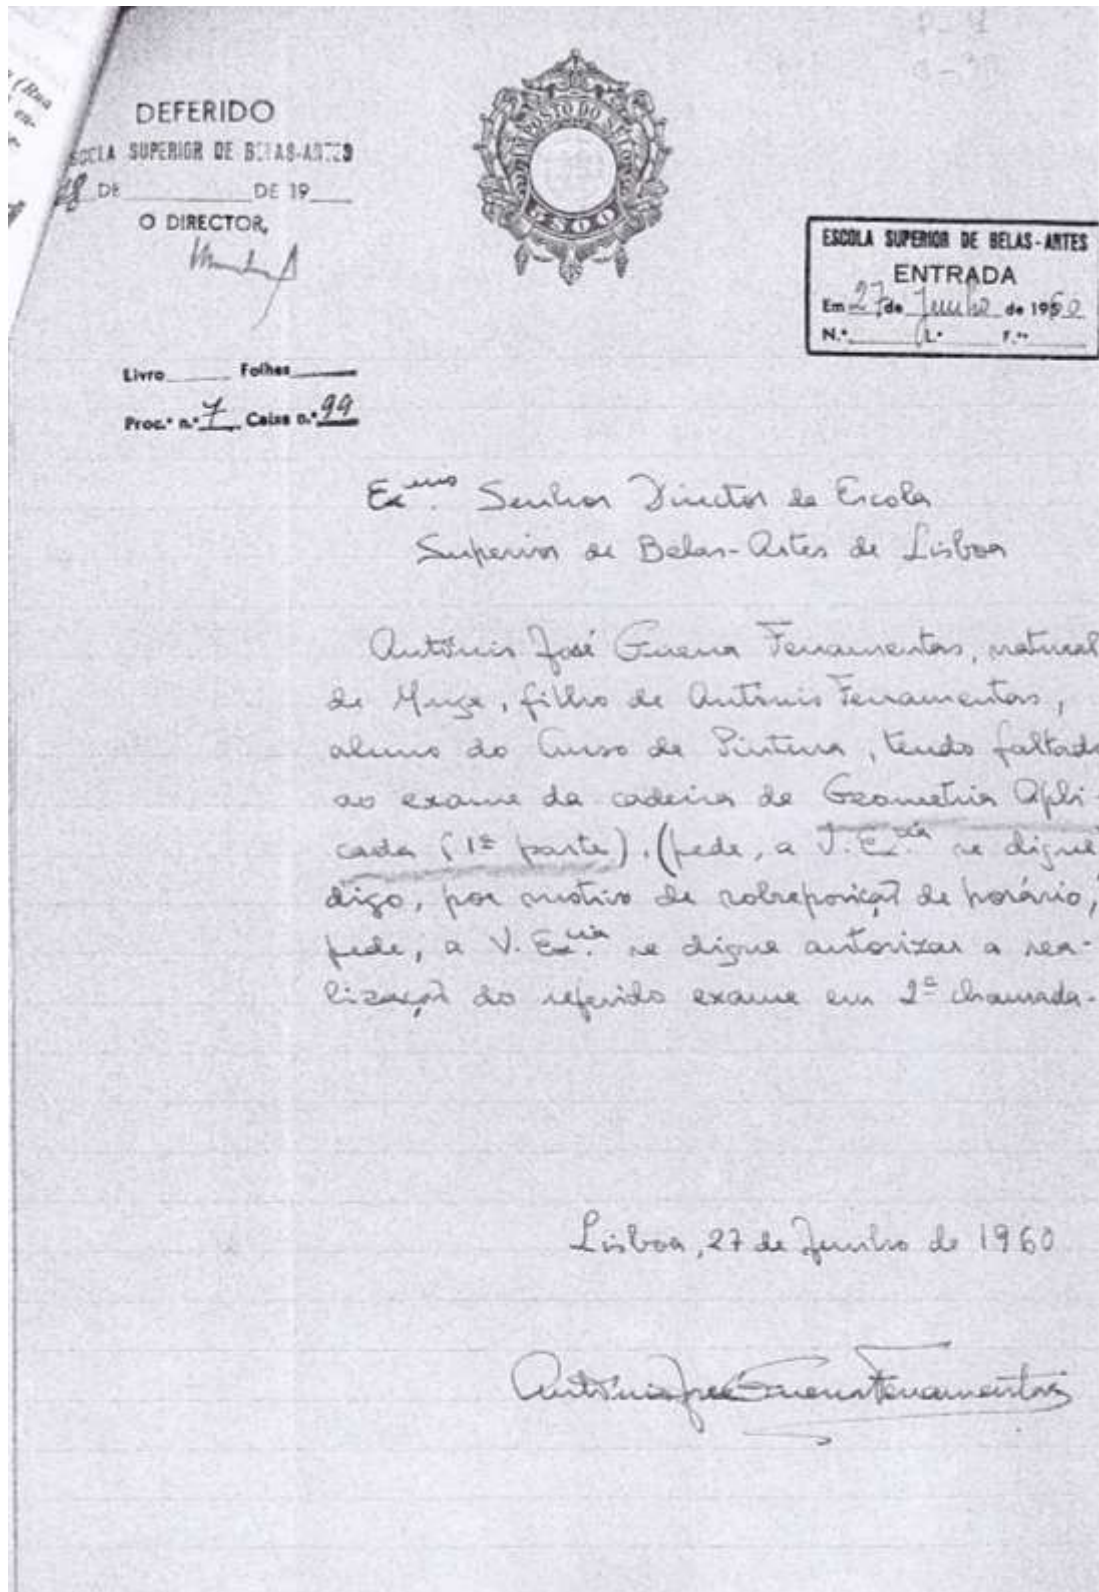 (Rua
DEFERIDO
ESCOLA SUPERIOR DE BELAS-ARTES
28 DE DE 19
O DIRECTOR,
IMPOSTO DO SELO
5$00
ESCOLA SUPERIOR DE BELAS-ARTES
ENTRADA
Em 27 de Junho de 1960
N.º L.º F.ªˢ
Livro Folhas
Proc.º n.º 7 Caixa n.º 99
Ex.ᵐᵒ Senhor Director da Escola
Superior de Belas-Artes de Lisboa
António José Guerra Ferramentas, natural
de Muge, filho de António Ferramentas,
aluno do Curso de Pintura, tendo faltado
ao exame da cadeira de Geometria Apli-
cada (1ª parte). (pede, a V. Ex.ᶜⁱᵃ se digne
digo, por motivo de sobreposição de horário,
pede, a V. Ex.ᶜⁱᵃ se digne autorizar a rea-
lização do referido exame em 2ª chamada.
Lisboa, 27 de Junho de 1960
António José Guerra Ferramentas